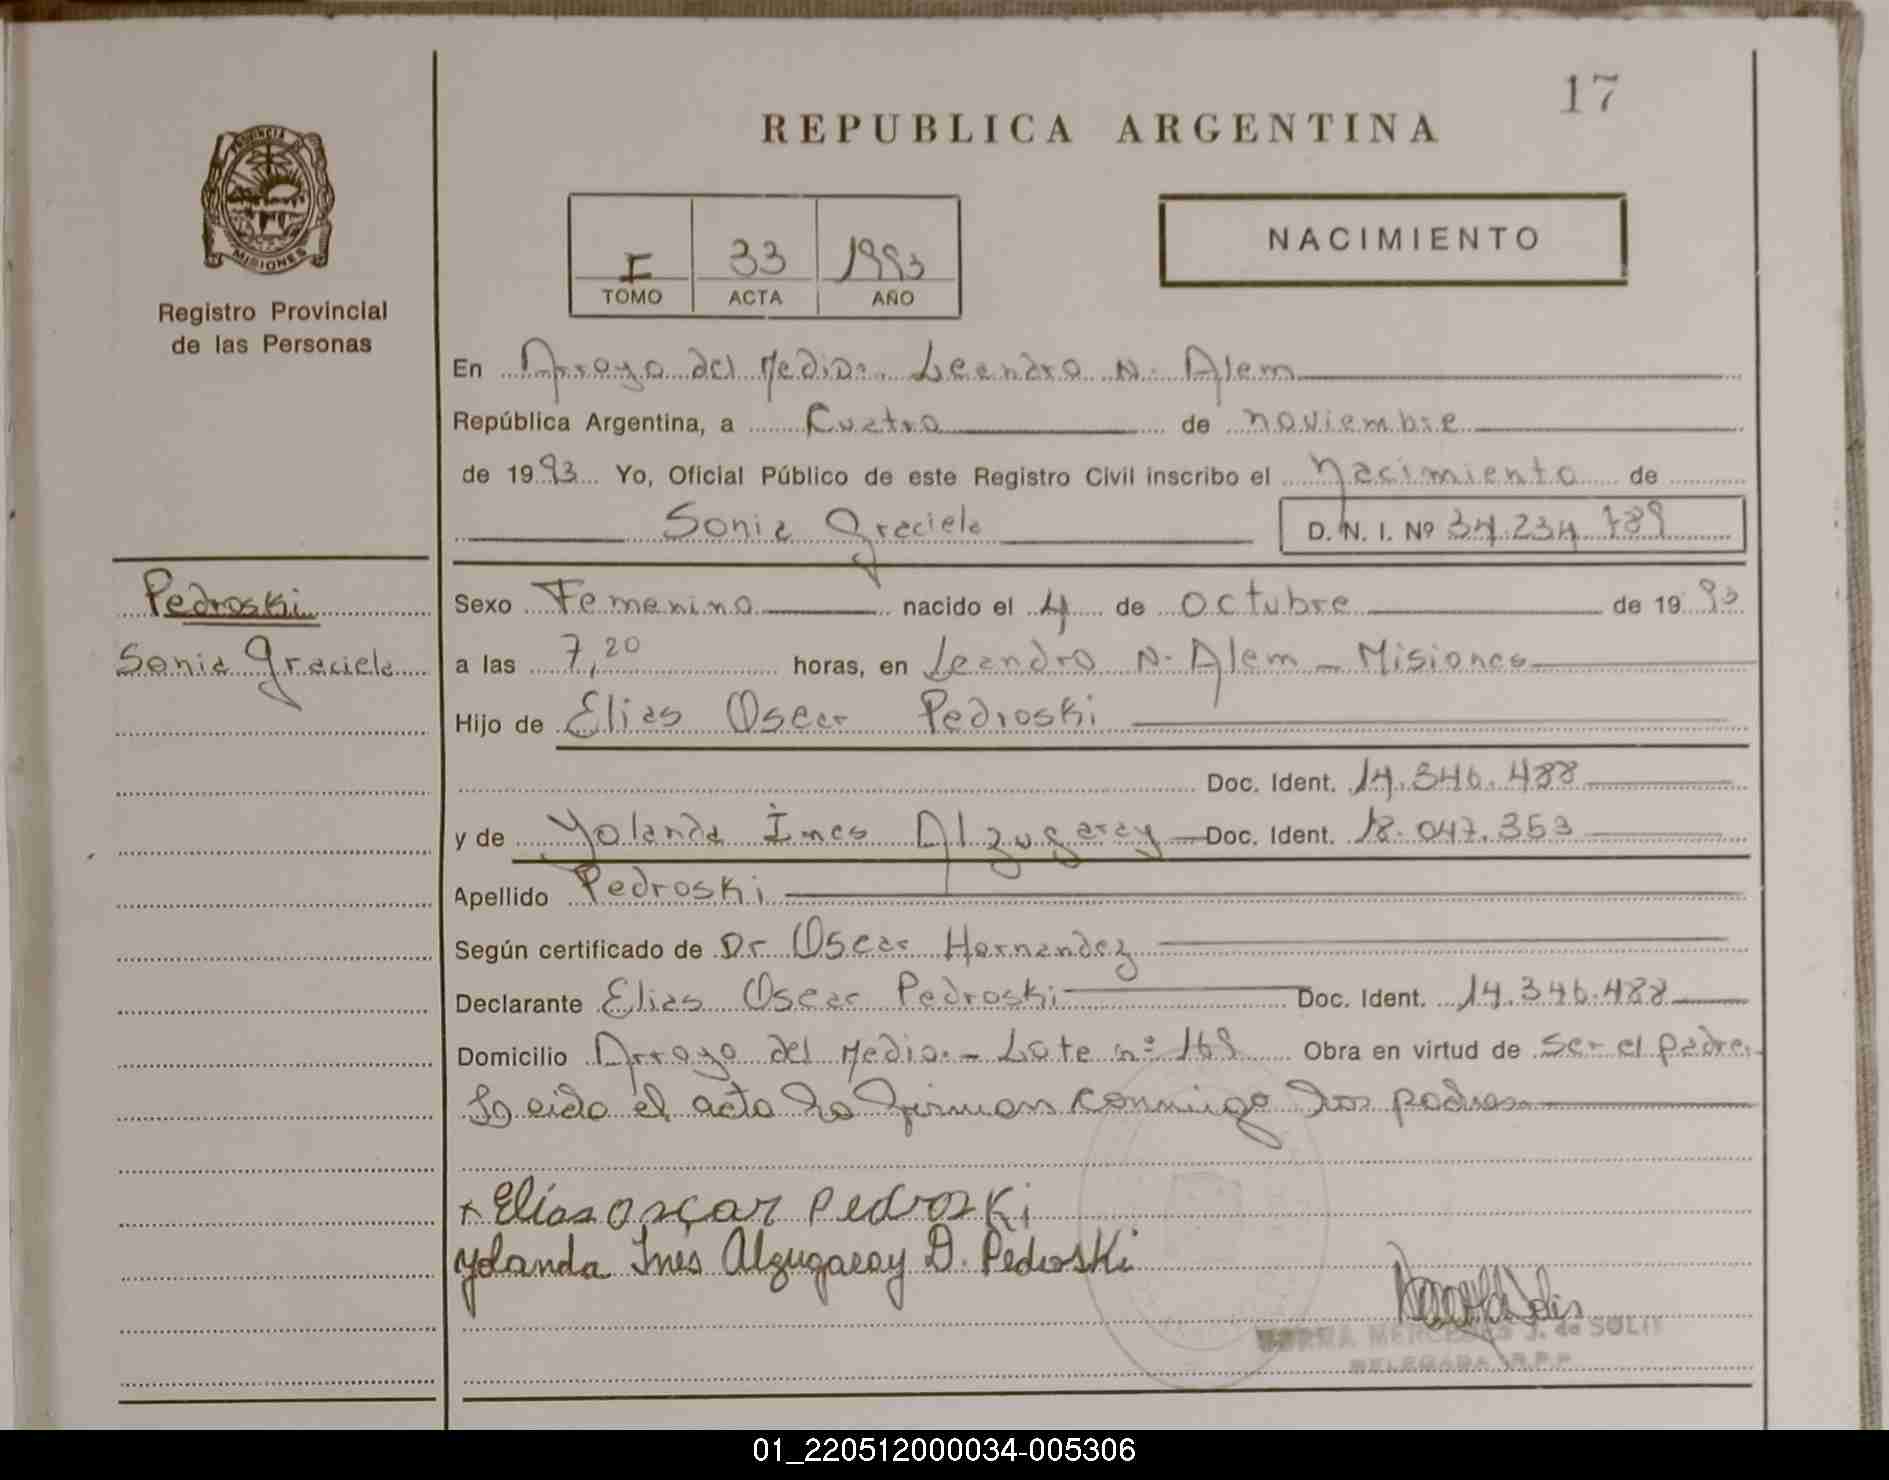 17
REPUBLICA ARGENTINA
PROVINCIA DE
MISIONES
Registro Provincial
de las Personas
I 33 1993
TOMO ACTA AÑO
NACIMIENTO
En Arroyo del Medio. Leandro N. Alem
República Argentina, a Cuatro de noviembre
de 1993 Yo, Oficial Público de este Registro Civil inscribo el Nacimiento de
Sonia Graciela D. N. I. Nº 34.234.789
Pedroski
Sonia Graciela
Sexo Femenino nacido el 4 de octubre de 1993
a las 7,20 horas, en Leandro N. Alem - Misiones
Hijo de Elias Oscar Pedroski
Doc. Ident. 14.346.488
y de Yolanda Ines Alzugaray Doc. Ident. 18.047.353
Apellido Pedroski
Según certificado de Dr Oscar Hernandez
Declarante Elias Oscar Pedroski Doc. Ident. 14.346.488
Domicilio Arroyo del Medio. - Lote nº 169 Obra en virtud de ser el padre.
Leido el acta la firman conmigo los padres
x Elías oscar Pedroski
Yolanda Ines Alzugaray D. Pedroski
NORMA MERCEDES J. de SOLIS
DELEGADA R.P.P.
01_220512000034-005306